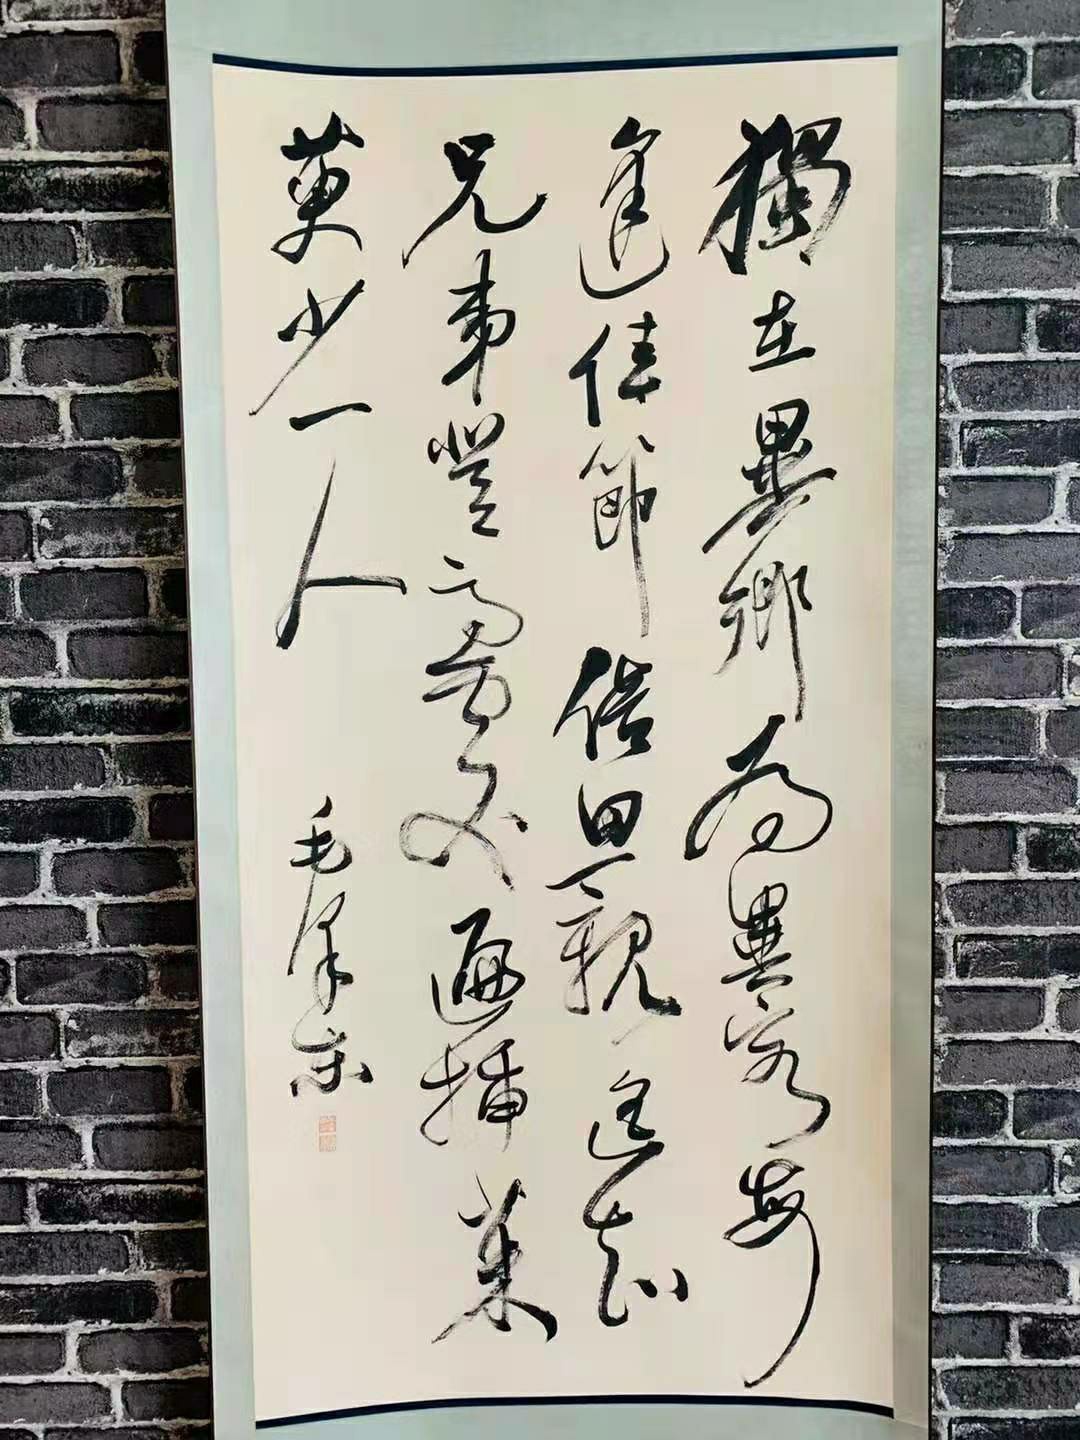 獨在異鄉為異客每
逢佳節倍思親遥知
兄弟登高處遍插茱
萸少一人
毛澤東